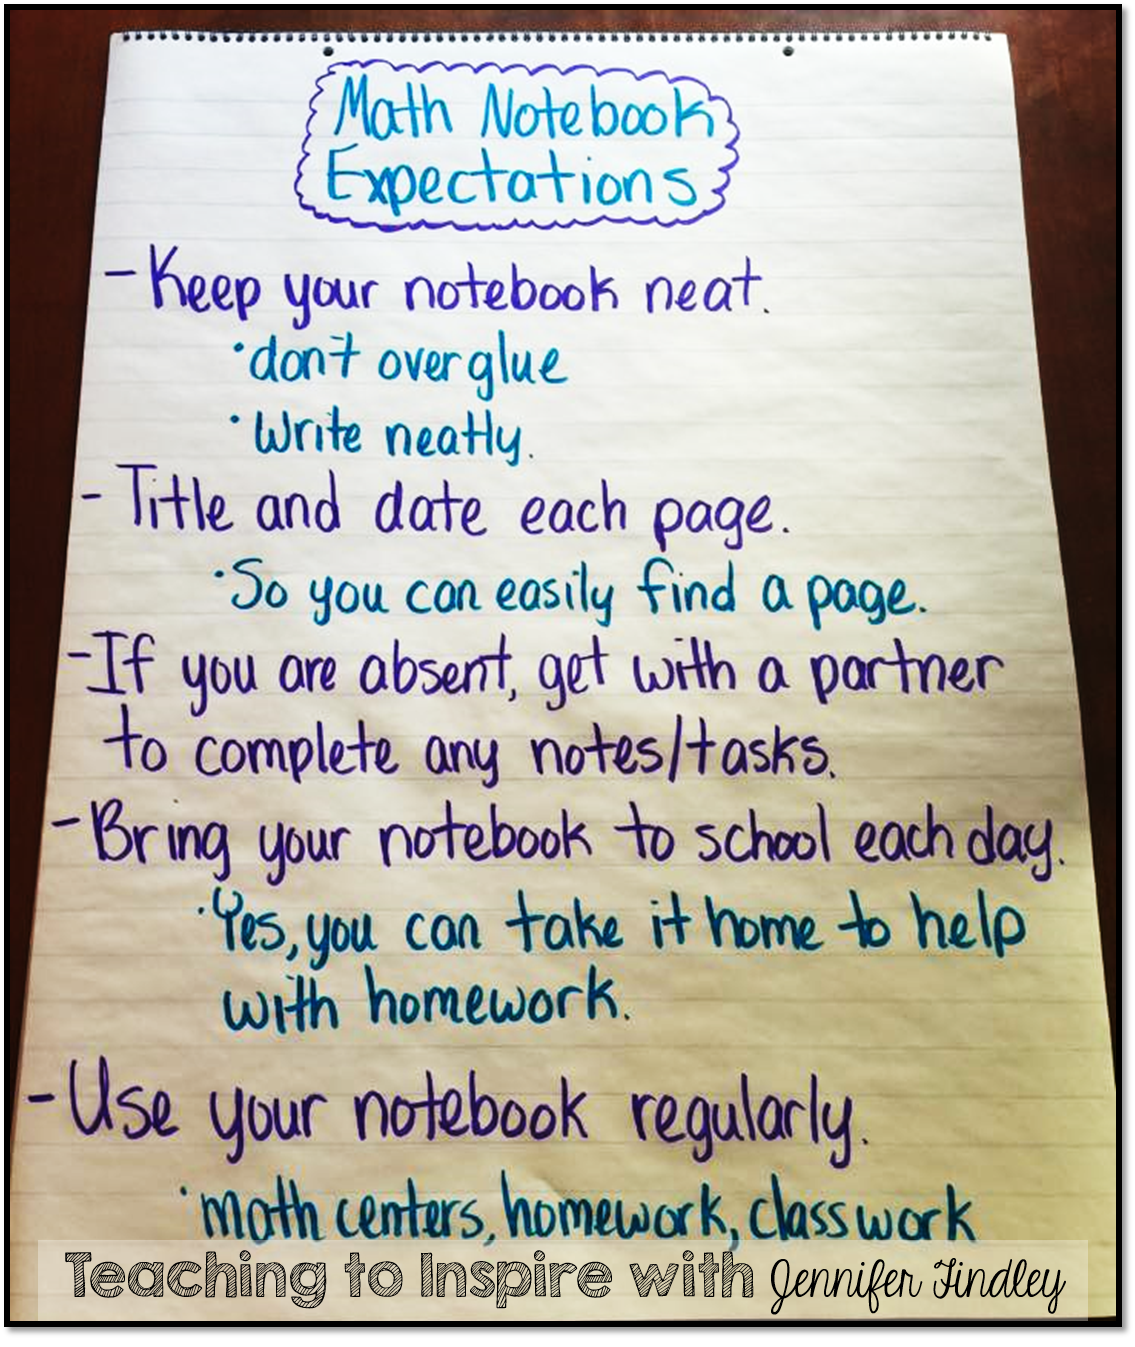 Math Notebook
Expectations
- Keep your notebook neat.
• don't over glue
• Write neatly.
- Title and date each page.
• So you can easily find a page.
- If you are absent, get with a partner
to complete any notes/tasks.
- Bring your notebook to school each day.
• Yes, you can take it home to help
with homework.
- Use your notebook regularly.
• math centers, homework, classwork
Teaching to Inspire with Jennifer Findley